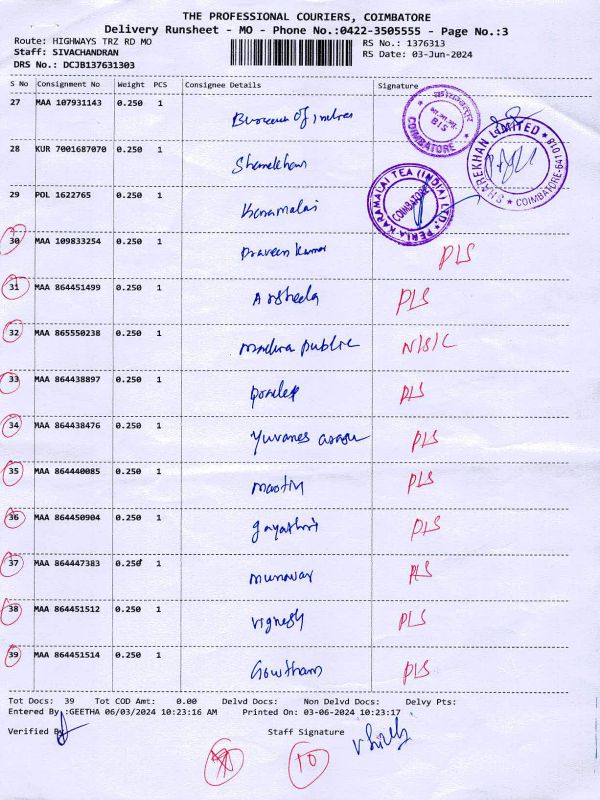 THE PROFESSIONAL COURIERS, COIMBATORE
Delivery Runsheet - MO - Phone No.:0422-3505555 - Page No.:3
Route: HIGHWAYS TRZ RD MO RS No.: 1376313
Staff: SIVACHANDRAN RS Date: 03-Jun-2024
DRS No.: DCJB137631303
S No Consignment No Weight PCS Consignee Details Signature
27 MAA 107931143 0.250 1 Bureau Of COIMBATORE BIS
28 KUR 7001687070 0.250 1 Sharekhan SHAREKHAN LIMITED COIMBATORE-641018
29 POL 1622765 0.250 1 PERIA KARAMALAI TEA (INDIA) LTD. COIMBATORE
30 MAA 109833254 0.250 1 Praveen Kumar PLS
31 MAA 864451499 0.250 1 Arsheda PLS
32 MAA 865550238 0.250 1 public N/S/C
33 MAA 864438897 0.250 1 PLS
34 MAA 864438476 0.250 1 Yuvanes arasu PLS
35 MAA 864440085 0.250 1 PLS
36 MAA 864450904 0.250 1 gayathri PLS
37 MAA 864447383 0.250 1 munavar PLS
38 MAA 864451512 0.250 1 vignesh PLS
39 MAA 864451514 0.250 1 Gowtham PLS
Tot Docs: 39 Tot COD Amt: 0.00 Delvd Docs: Non Delvd Docs: Delvy Pts:
Entered By :GEETHA 06/03/2024 10:23:16 AM Printed On: 03-06-2024 10:23:17
Verified By Staff Signature
10